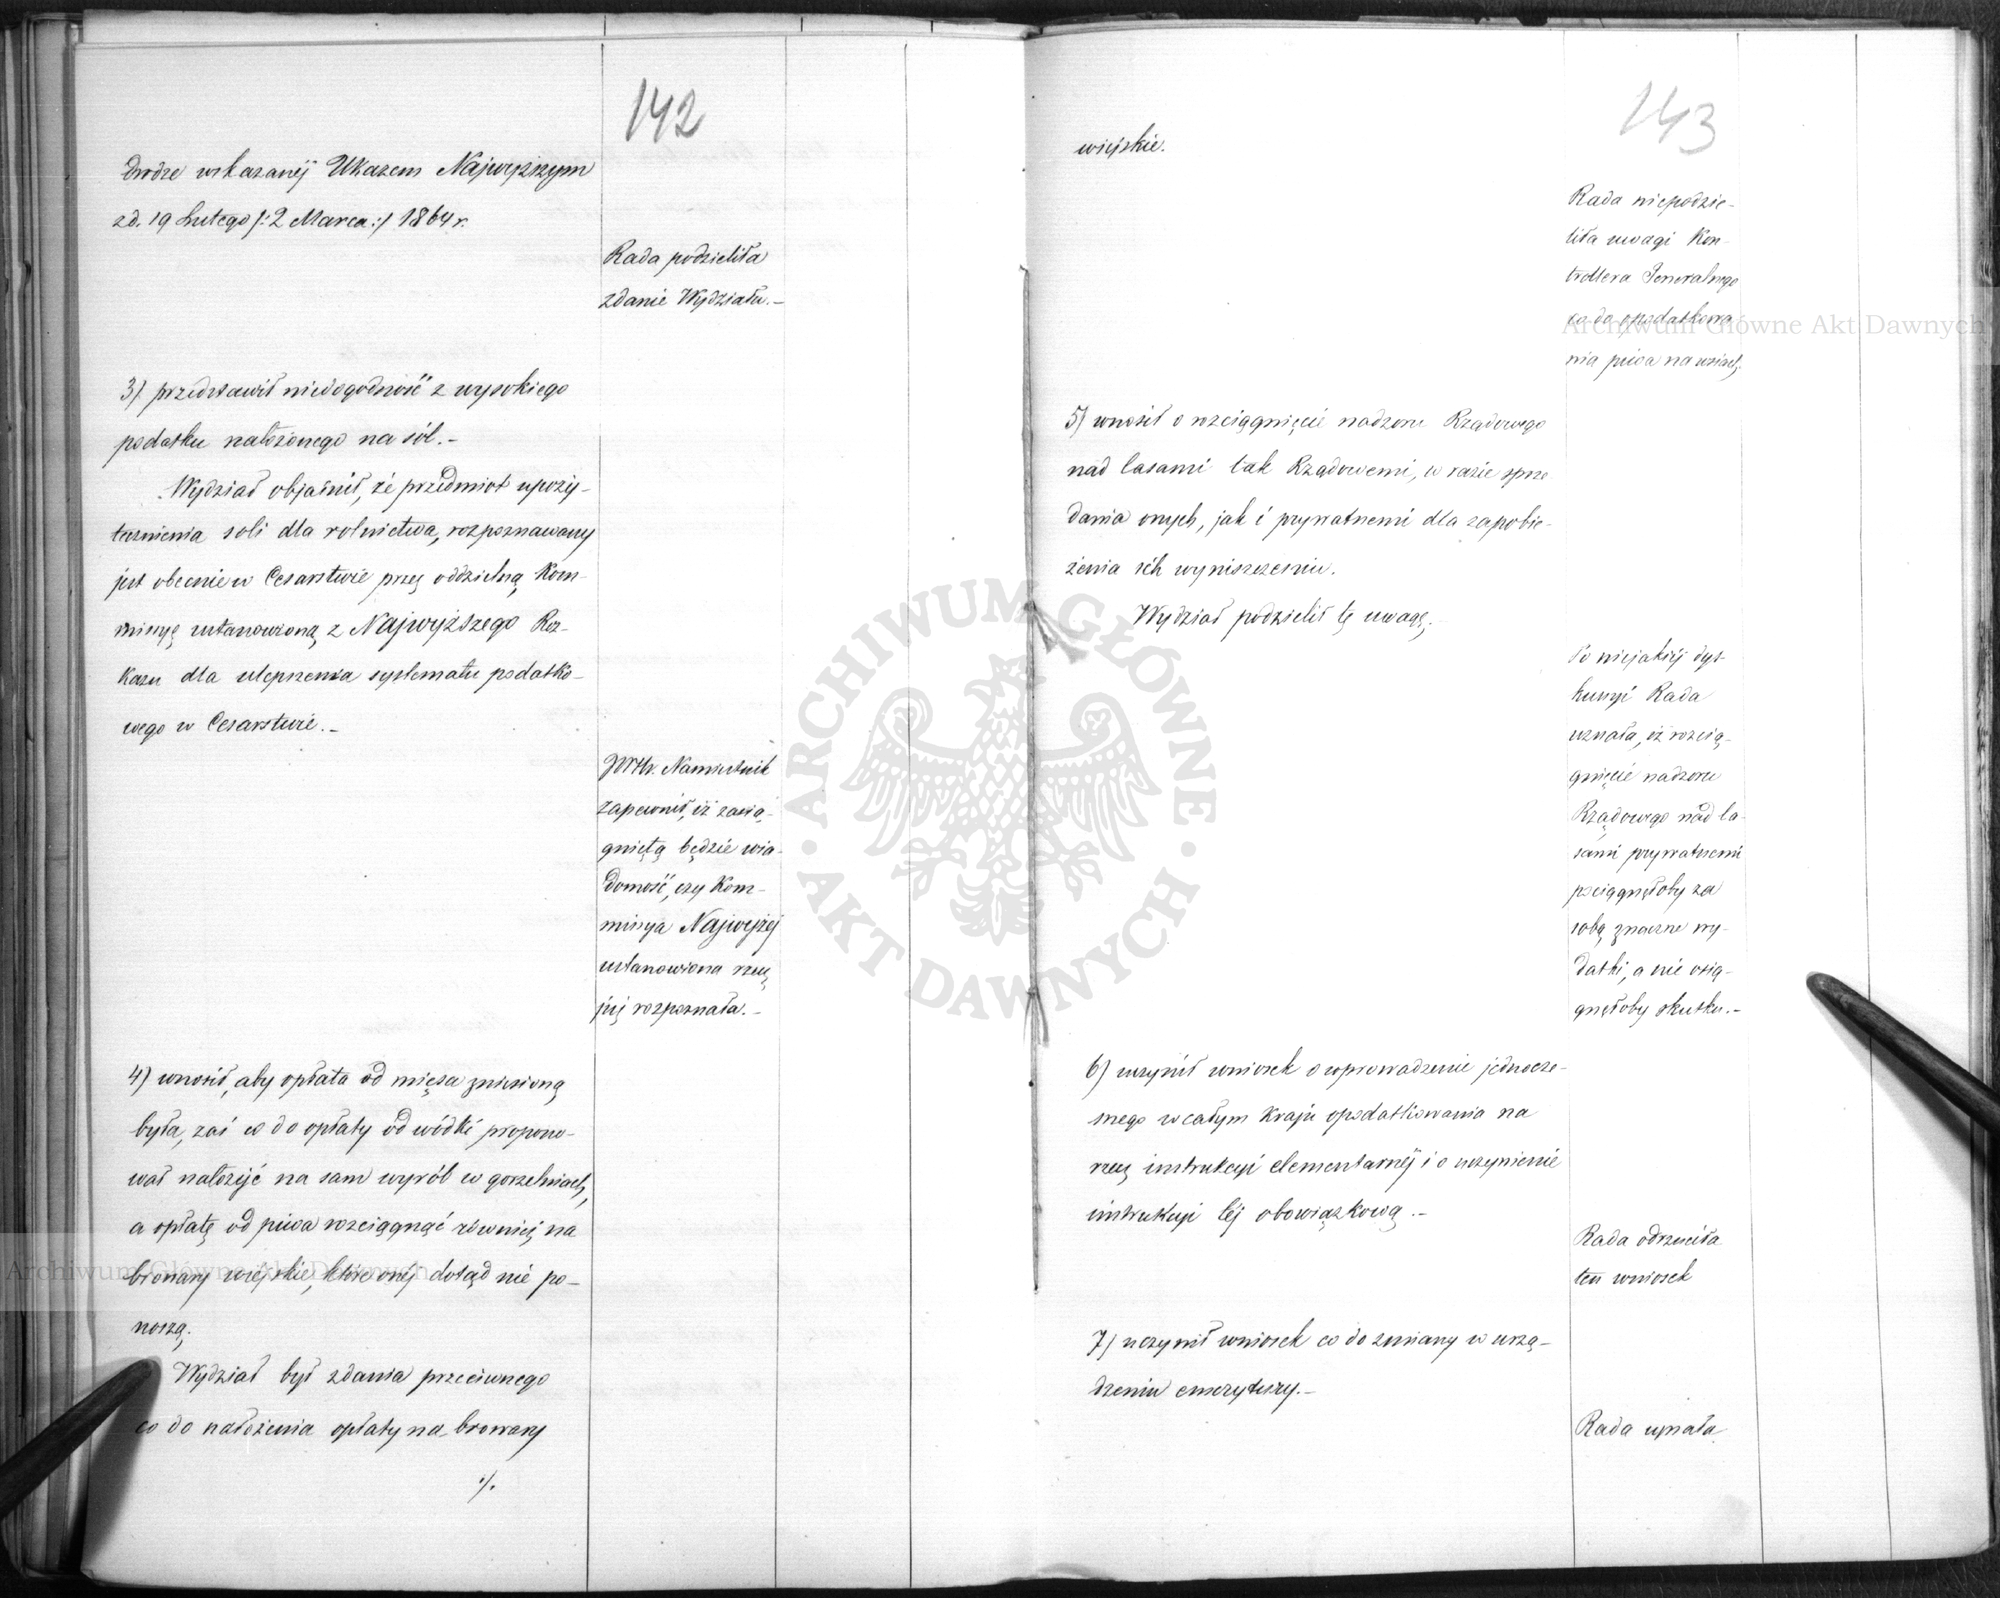 142
drodze wskazanéj Ukazem Najwyższym
z d. 19 Lutego /:2 Marca:/ 1864 r.
Rada podzieliła
zdanie Wydziału.–
3) przedstawił niedogodność z wysokiego
podatku nałożonego na sól.–
Wydział objaśnił, że przedmiot upoży-
tecznienia soli dla rolnictwa, rozpoznawany
jest obecnie w Cesarstwie przez oddzielną Kom-
missyę ustanowioną z Najwyższego Roz-
kazu dla ulepszenia systematu podatko-
wego w Cesarstwie.–
JWHr. Namiestnik
zapewnił, iż zacią-
gniętą będzie wia-
domość, czy Kom-
missya Najwyżej
ustanowiona rzecz
tę rozpoznała.–
4) wnosił, aby opłata od mięsa zniesioną
była, zaś co do opłaty od wódki propono-
wał nałożyć na sam wyrób w gorzelniach,
a opłatę od piwa rozciągnąć również na
browary wiejskie, które onéj dotąd nie po-
noszą.
Wydział był zdania przeciwnego
co do nałożenia opłaty na browary
./.
143
wiejskie.
Rada niepodzie-
liła uwagi Kon-
trollera Jeneralnego
co do opodatkowa
nia piwa na wsiach.
5) wnosił o rozciągnięcie nadzoru Rządowego
nad lasami tak Rządowemi, w razie sprze
dania onych, jak i prywatnemi dla zapobie-
żenia ich wyniszczeniu.
Wydział podzielił tę uwagę.
Po niejakiéj dys-
kussyi Rada
uznała, iż rozcią-
gnięcie nadzoru
Rządowego nad la-
sami prywatnemi
pociągnęłoby za
sobą znaczne wy-
datki, a nie osią-
gnęłoby skutku.–
6) uczynił wniosek o wprowadzenie jednocze-
snego w całym Kraju opodatkowania na
rzecz instrukcyi elementarnéj i o uczynienie
instrukcyi téj obowiązkową.–
Rada odrzuciła
ten wniosek
7) uczynił wniosek co do zmiany w urzą-
dzeniu emerytury.–
Rada uznała
Archiwum Główne Akt Dawnych
Archiwum Główne Akt Dawnych
ARCHIWUM GŁÓWNE
AKT DAWNYCH